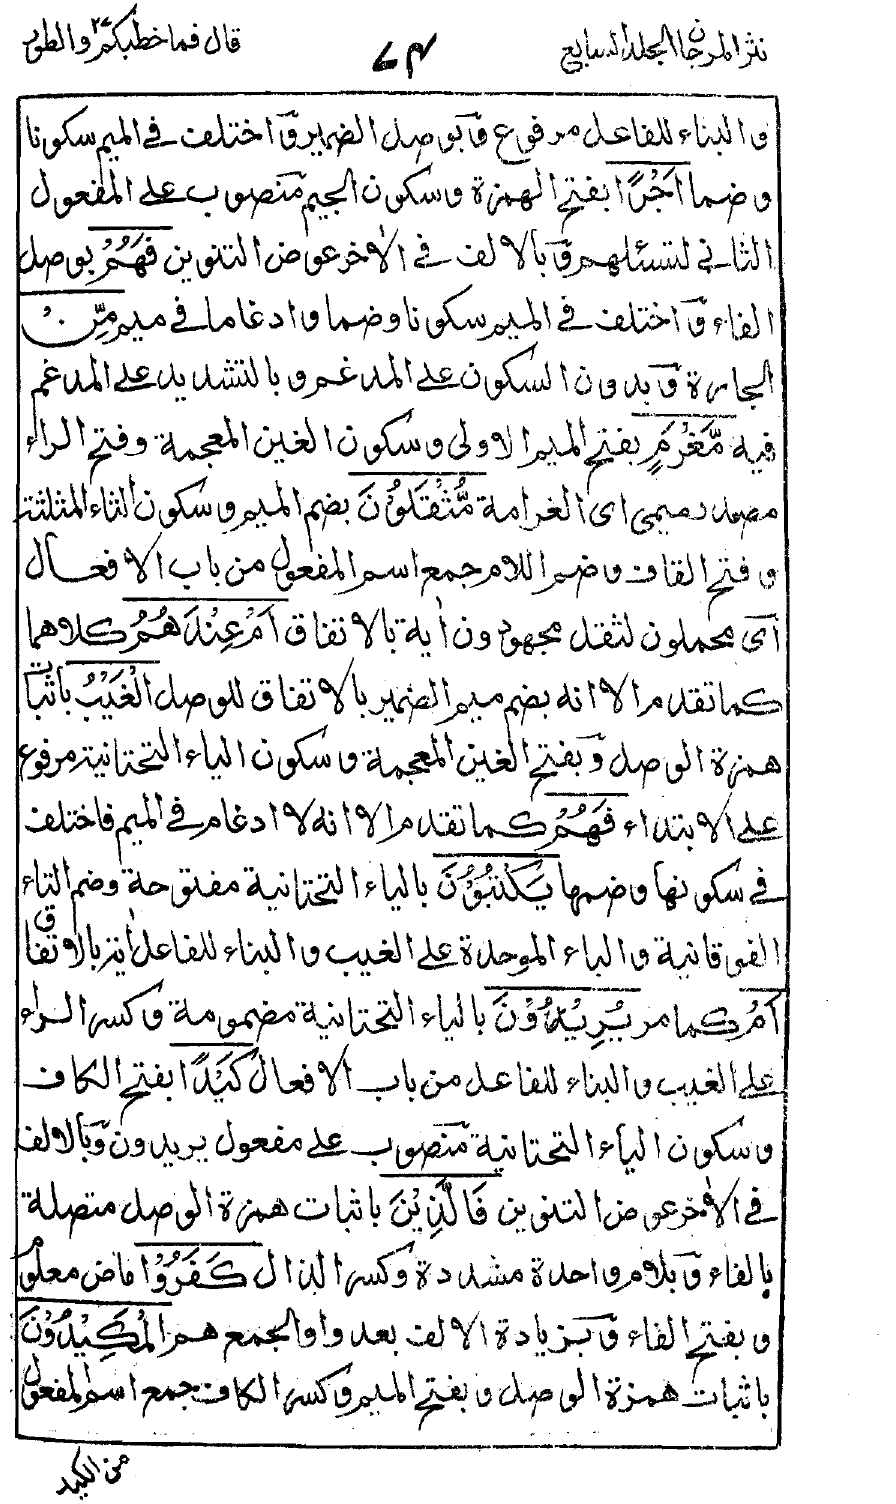 قال فما خطبكم ٢٧ والطور
٧٤
نثر المرجان المجلد السابع
و البناء للفاعل مرفوع وَبوصل الضمير وَاختلف في الميم سكونا
و ضما اَجْرًا بفتح الهمزة و سكون الجيم منصوب على المفعول
الثاني لتسئلهم وَبالالف في الاٰخر عوض التنوين فَهُمْ بوصل
الفاء وَاختلف في الميم سكونا و ضما و ادغاما في ميم مِّنْ
الجارة وَبدون السكون على المدغم و بالتشديد على المدغم
فيه مَّغْرَمٍ بفتح الميم الاولى و سكون الغين المعجمة و فتح الراء
مصدر ميمى اى الغرامة مُّثْقَلُوْنَ بضم الميم و سكون الثاء المثلثة
و فتح القاف و ضم اللام جمع اسم المفعول من باب الافعال
اَى محملون لثقل مجهودون اٰية بالاتفاق اَمْ عِنْدَهُمُ كلاهما
كما تقدم الا انه بضم ميم الضمير بالاتفاق للوصل الْغَيْبُ باثبات
همزة الوصل وَبفتح الغين المعجمة و سكون الياء التحتانية مرفوع
على الابتداء فَهُمْ كما تقدم الا انه لا ادغام في الميم فاختلف
في سكونها و ضمها يَكْتُبُوْنَ بالياء التحتانية مفتوحة و ضم التاء
الفوقانية و الباء الموحدة على الغيب و البناء للفاعل اٰية بالاتفاق
اَمْ كما مر يُرِيْدُوْنَ بالياء التحتانية مضمومة و كسر الراء
على الغيب و البناء للفاعل من باب الافعال كَيْدًا بفتح الكاف
و سكون الياء التحتانية منصوب على مفعول يريدون وَبالالف
في الاٰخر عوض التنوين فَالَّذِيْنَ باثبات همزة الوصل متصلة
بالفاء وَبلام واحدة مشددة و كسر الذال كَفَرُوْا ماض معلوم
و بفتح الفاء وَبزيادة الالف بعد واو الجمع هم الْمَكِيْدُوْنَ
باثبات همزة الوصل و بفتح الميم و كسر الكاف جمع اسم المفعول
من الكيد